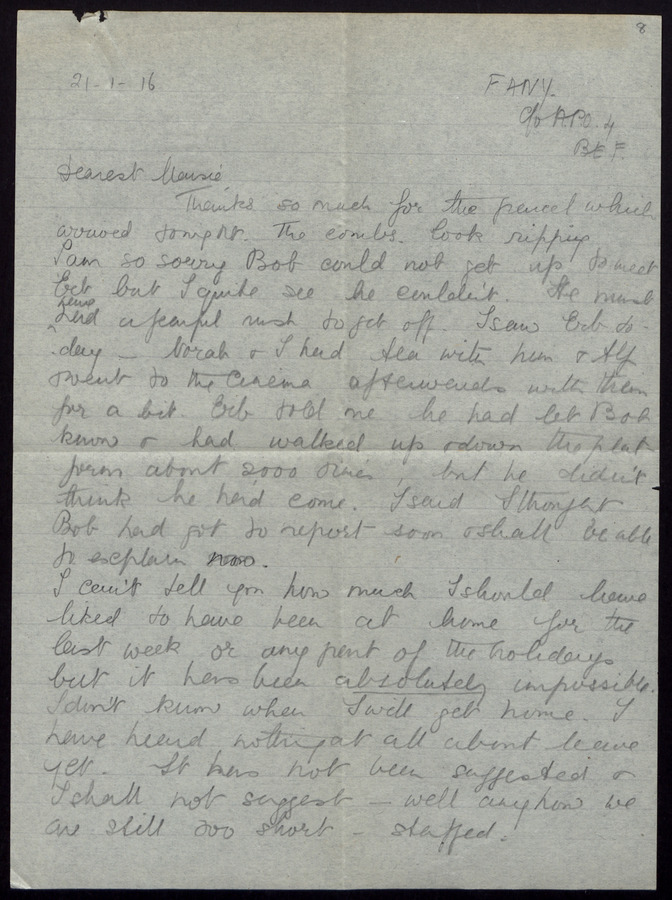 8
21-1-16
FANY.
c/o APO. 4
BEF.
Dearest Maisie
Thanks so much for the parcel which
arrived tonight. The combs. look ripping
I am so sorry Bob could not get up to meet
Erb but I quite see he couldn't. He must
have
had a fearful rush to get off. I saw Erb to-
day – Norah & I had tea with him & Alf
& went to the Cinema afterwards with them
for a bit. Erb told me he had let Bob
know & had walked up & down the plat-
form about 2000 times, but he didn't
think he had come. I said I thought
Bob had got to report soon & shall be able
to explain now.
I can't tell you how much I should have
liked to have been at home for the
last week or any part of the holidays
but it has been absolutely impossible.
I don't know when I will get home. I
have heard nothing at all about leave
yet. It has not been suggested &
I shall not suggest – well anyhow we
are still too short-staffed.